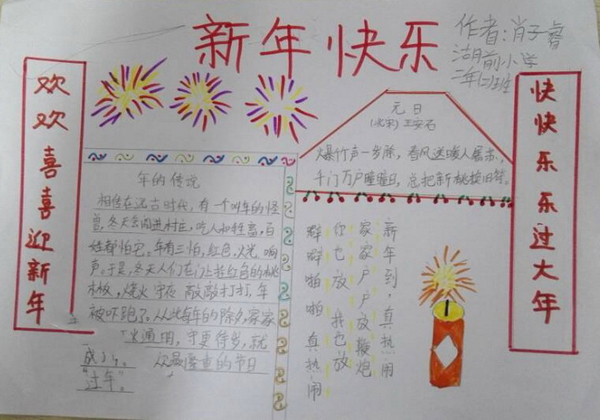 新年快乐
作者:肖子睿
湖前小学
二年(1)班
欢欢喜喜迎新年
快快乐乐过大年
元日
(北宋)王安石
爆竹声一岁除,春风送暖入屠苏,
千门万户曈曈日,总把新桃换旧符。
年的传说
相传在远古时代,有一个叫年的怪
兽,冬天会闯进村庄,吃人和牲畜,百
姓都怕它。年有三怕,红色、火光、响
声。于是,冬天人们在门上挂红色的桃
木板,烧火守夜 敲敲打打,年
被吓跑了。从此每年的除夕,家家
火通明,守更待岁,就
成了人
众最隆重的节日
“过年”。
新年到,真热闹
家家户户放鞭炮
你也放 我也放
噼噼啪啪真热闹